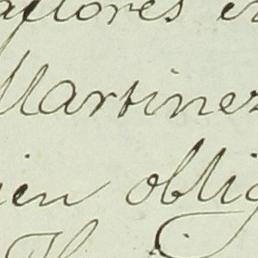 aflores e
Martinez
ien oblig